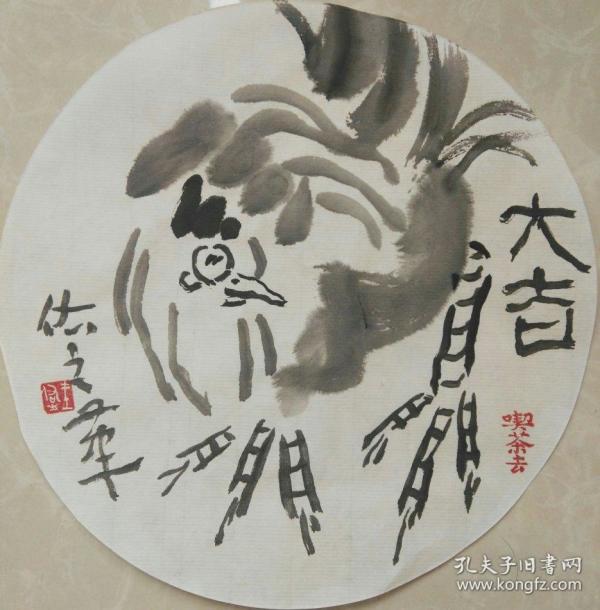 大吉
喫茶去
佐之
孔夫子旧书网
www.kongfz.com